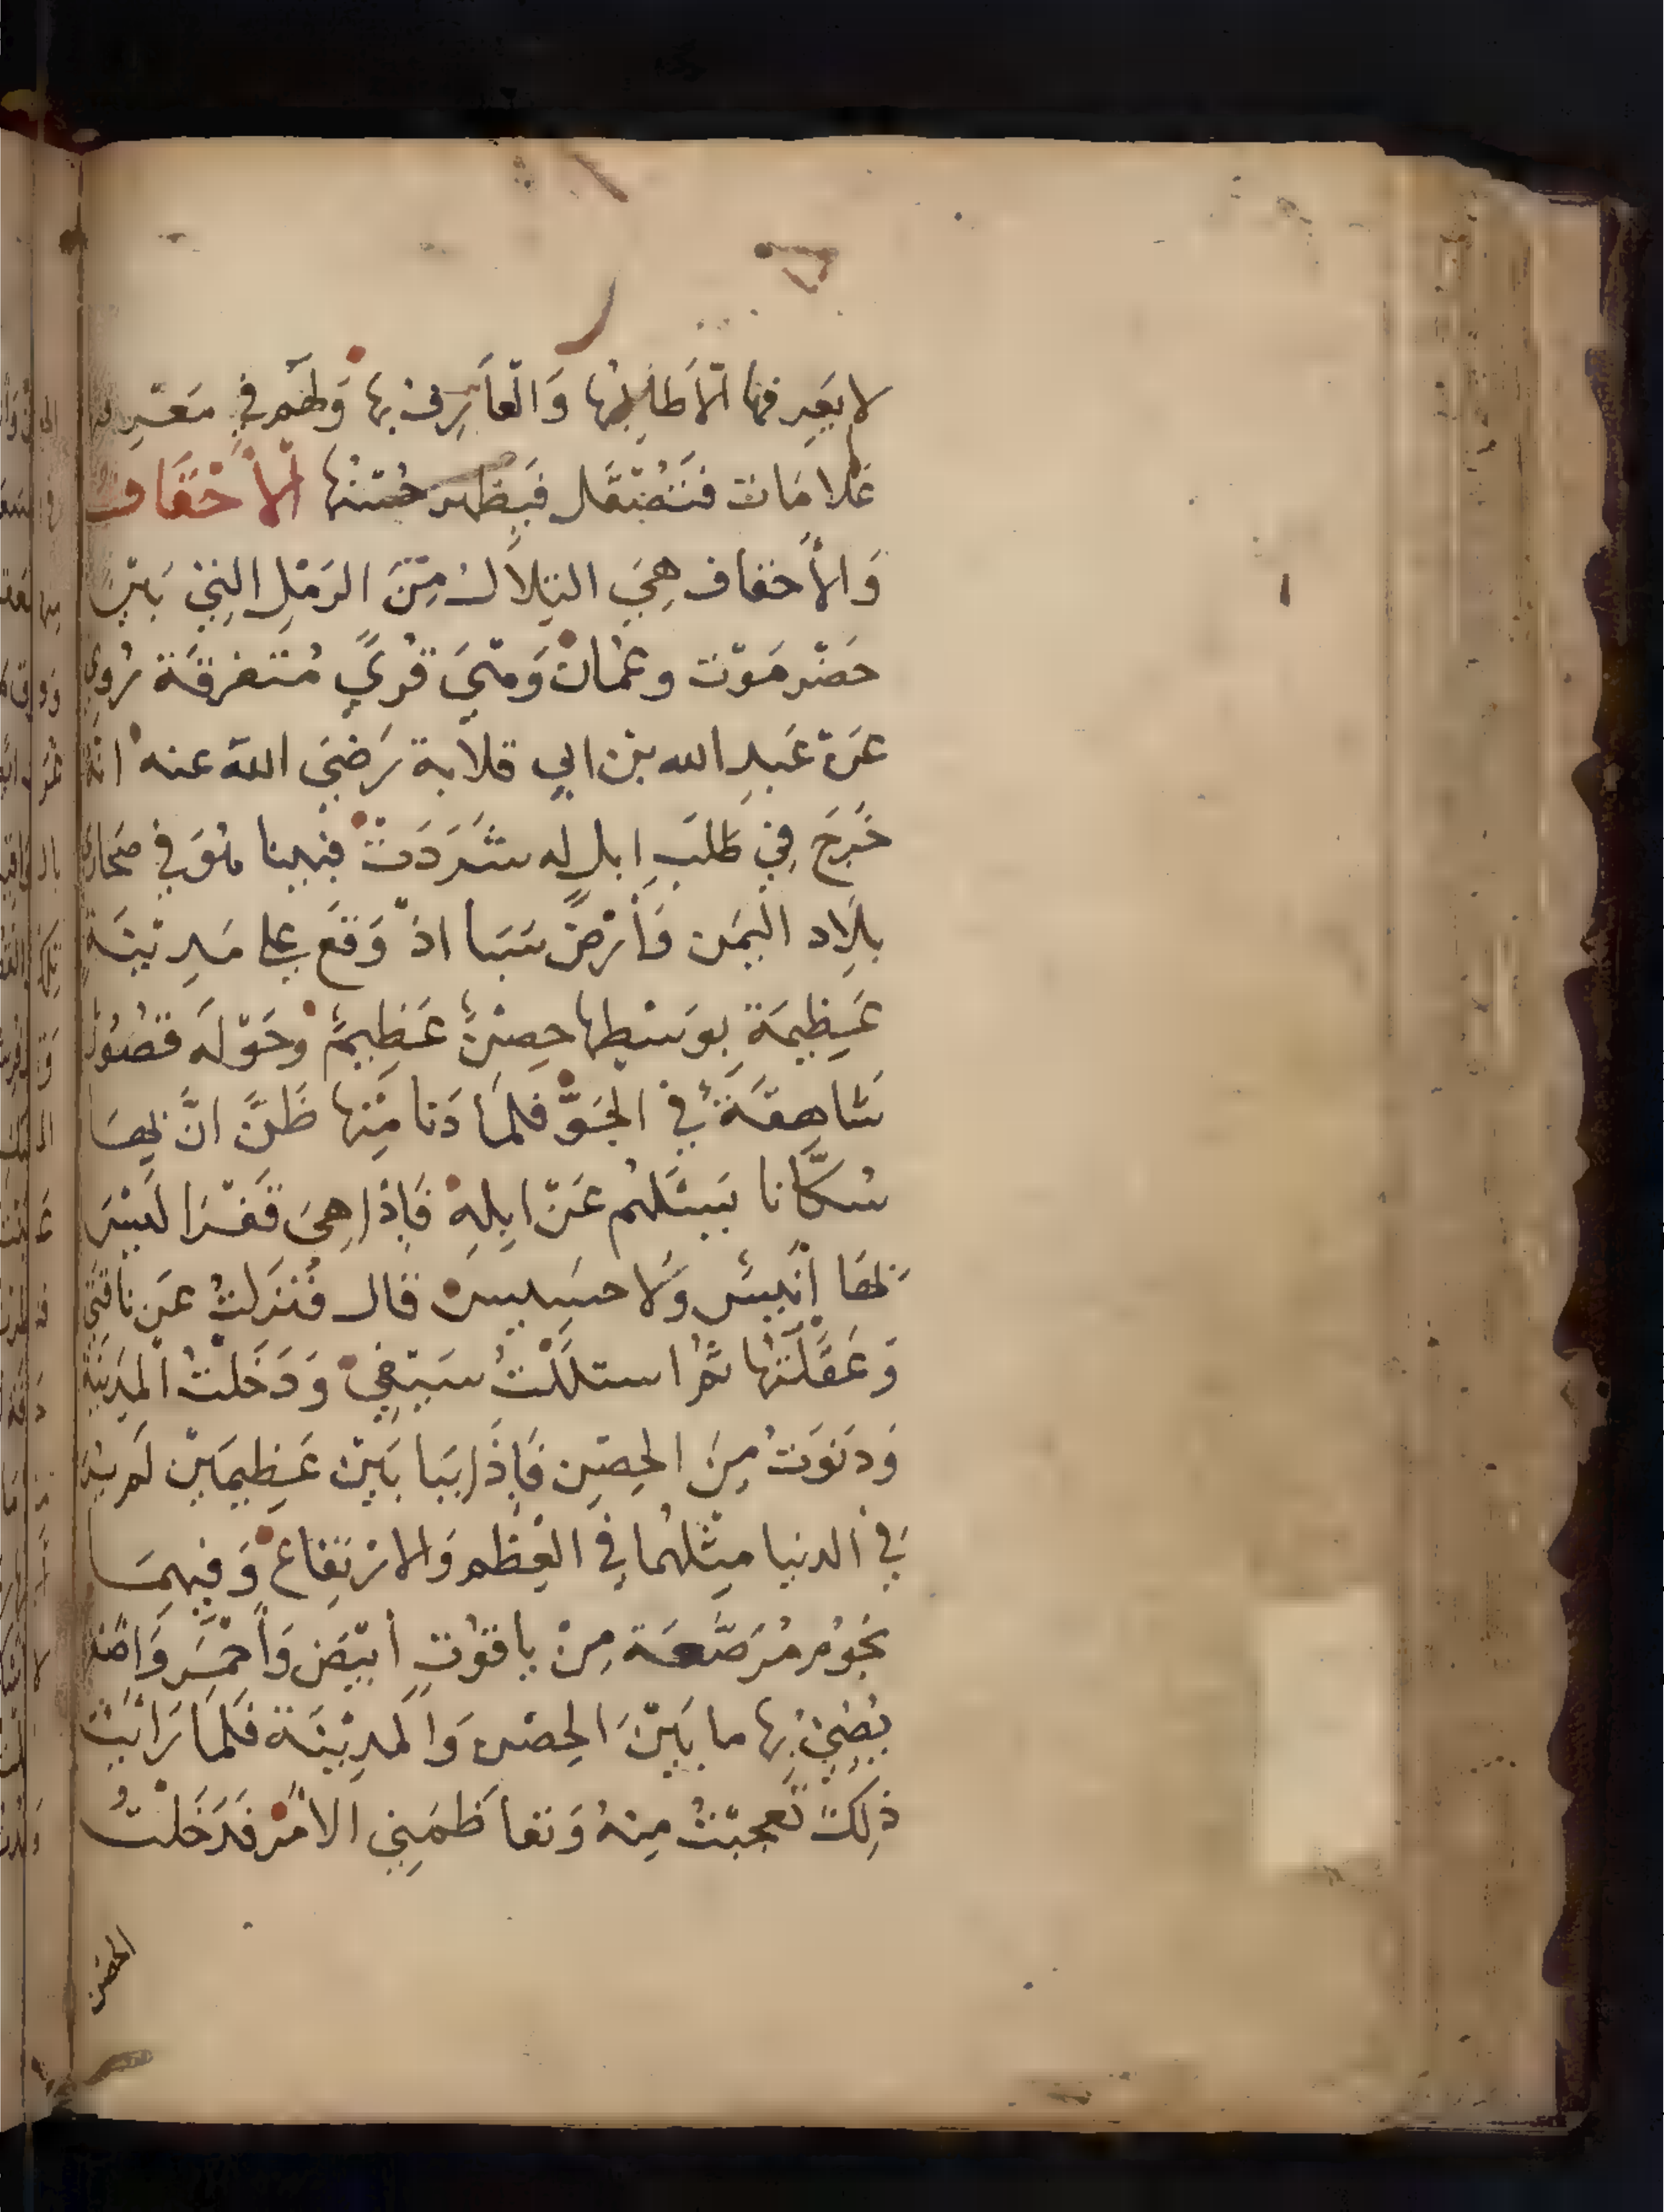 لا يَعرِفها الّا طَالِبُها وَالْعاَرِف بها وَلهَم في مَعْرِفة
عَلامَات فَتَصْقَل فَيظهر حُسْنُها الْأَحْقَاف
وَالأَحقاف هِيَ التِلَالُ مِنَ الرَمْلِ الّتِيْ بَيْنَ
حَضْرمَوْت وعُمان وَهْيَ قُرىً مُتَفرقَة رُوي
عَن عَبدِ الله بْن ابي قلابة رَضيَ اللهَ عنه انهُ
خَرَجَ فِي طَلبَ ابل له شَرَدَتْ فبينا هُوَ في صَحارى
بلَاد اليَمَن وَأَرْضِ سَبَأ اذْ وَقَعَ علي مَدِيْنَة
عَظِيمَة بوَسْطِها حِصْنٌ عَظِيمٌ وحَوْلَه قصُورٌ
شَاهِقَةٌ في الجَوِّ فلمَا دَنا مِنها ظَنَّ انَّ بهَا
سُكَّانا يَسْئَلهُم عَنْ ابِلِهِ فَاِذَا هِيَ قَفْرَا لَيْسَ
بهَا أَنيسٌ وَلا حسَيسٌ قال فَنَزَلتُ عَن نَاقَتي
وَعَقَلْتُها ثُمَّ استلَلْتُ سَيْفِي وَدَخَلْتُ الْمَدينَة
وَدَنَوتُ مِنَ الحِصْنِ فَاِذَا ببَا بَيْن عَظِيمَيْن لَم يُرَ
فِي الدنيا مِثْلهُما فِي العِظَم وَالارْتِفَاع وَفِيهِمَا
نجُوُم مُرَصَّعَة مِنْ ياقوُتِ أَبْيَض وَأَحْمَرَ وَاصْفر
يُضِيْ بِها ما بَيْنَ الحِصْن وَالمَدِيْنَة فَلمَا رَأَيْتُ
ذلِكَ تَعجبْتُ مِنهُ وَتعاَظَمَنِي الأمْر فَدَخَلْتُ
الحصن